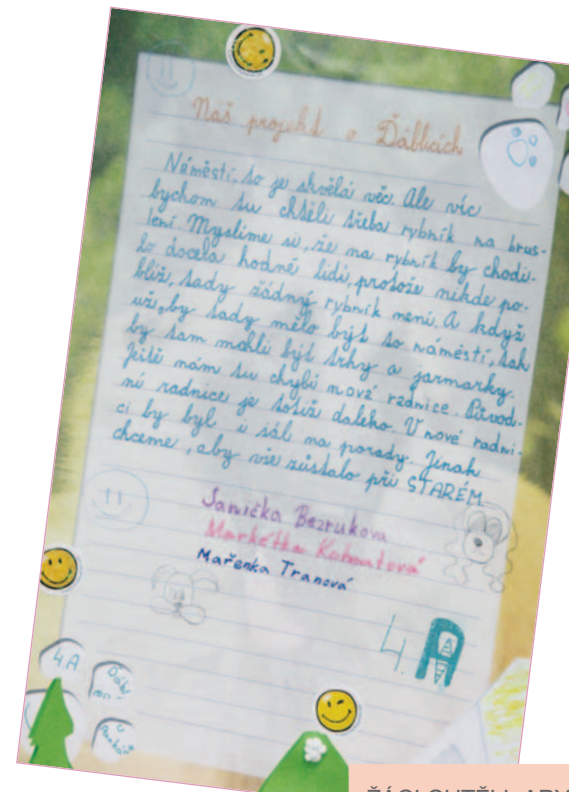 Náš projekt o Ďáblicích
Náměstí, to je skvělá věc. Ale víc
bychom tu chtěli třeba rybník na brus-
lení. Myslíme si, že na rybník by chodi-
lo docela hodně lidí, protože nikde po-
blíž, tady žádný rybník není. A když
už, by tady mělo být to náměstí, tak
by tam mohli být trhy a jarmarky.
Ještě nám tu chybí nové radnice. Původ-
ní radnice je totiž daleko. V nové radni-
ci by byl i sál na porady. Jinak
chceme, aby vše zůstalo při STARÉM
Janička Bezrukova
Markétka Kohnatová
Mařenka Tranová
4. A
4.A.